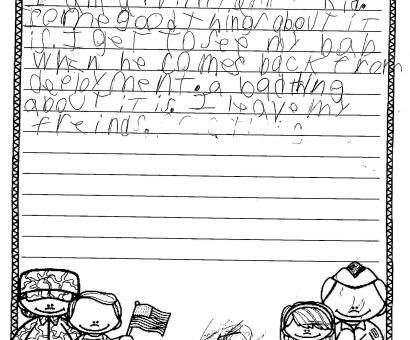 kid.
some good things about it
is. I get to see my bab
when he comes back from
deeployment. a bad thing
about it is. I leave my
freinds.